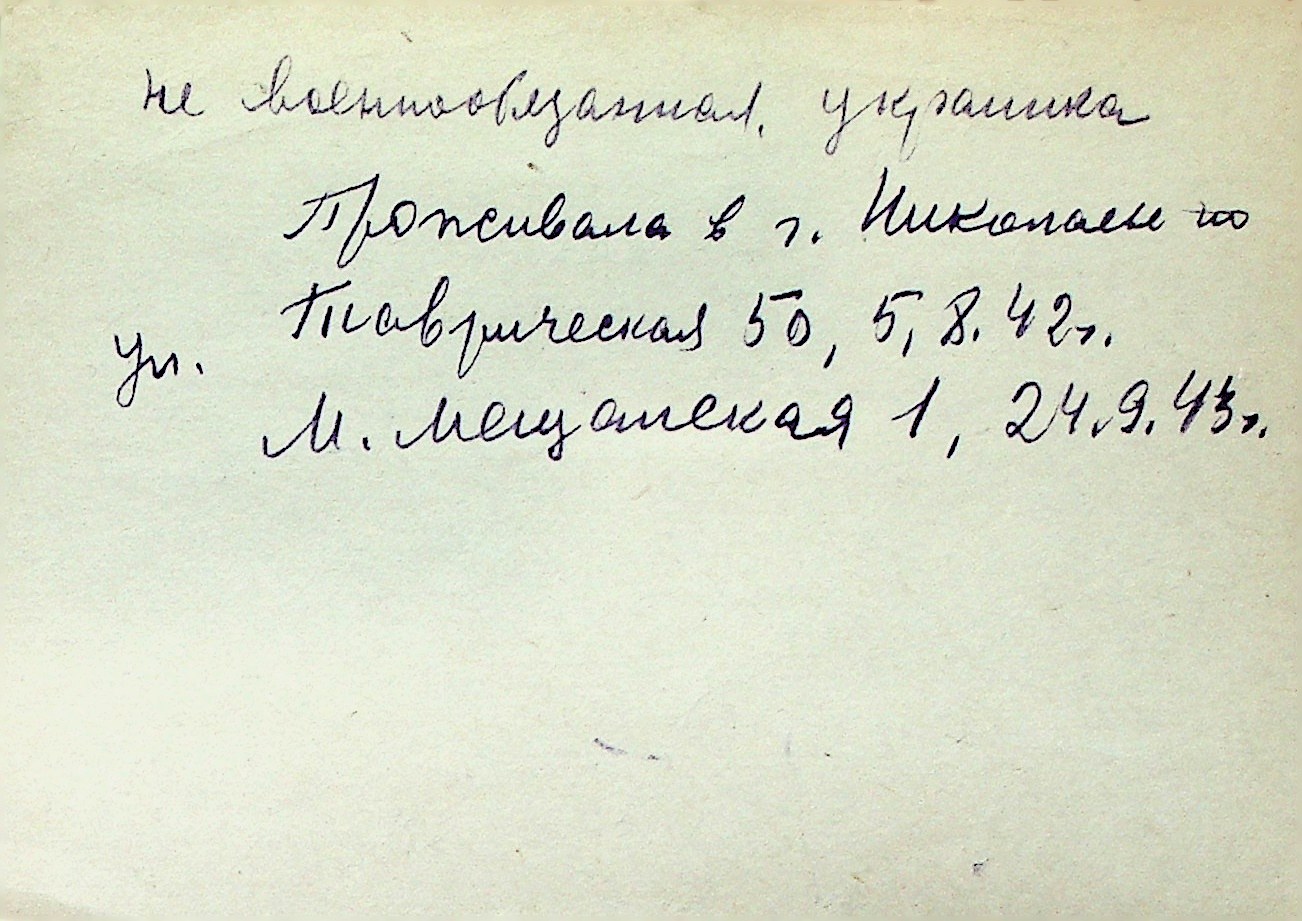 не военнообязанная, украинка
Проживала в г. Николаеве по
Таврическая 50, 5,8.42г.
ул.
М. Мещанская 1, 24.9.43г.